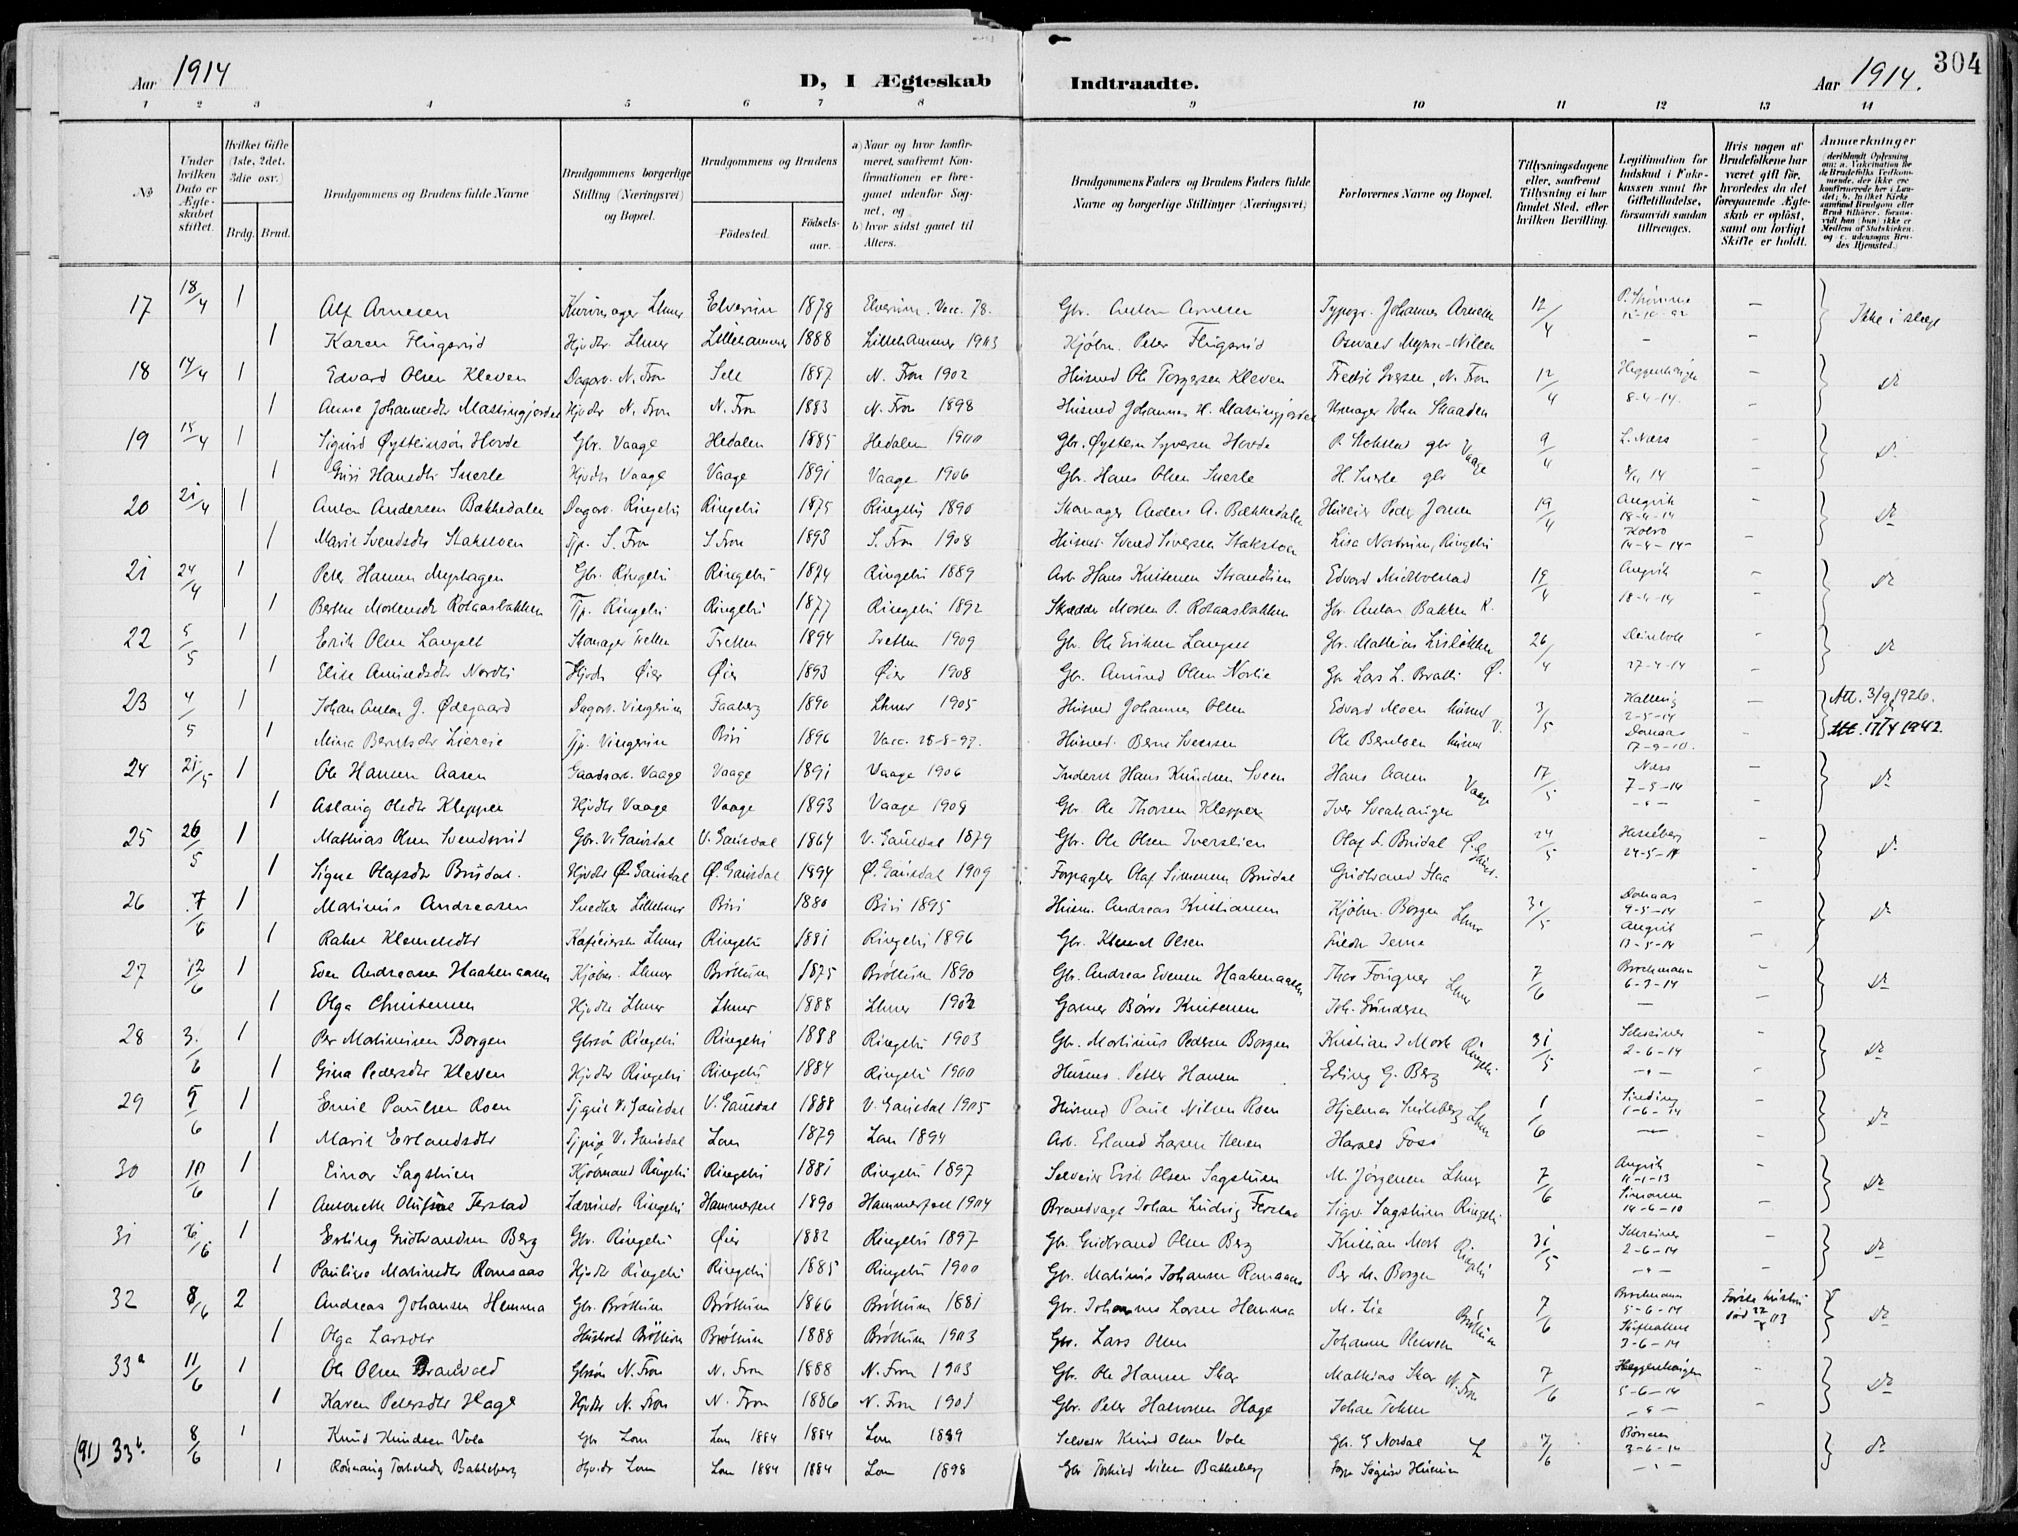 Aar 1914
D, I Ægteskab
Indtraadte.
Aar 1914.
304
1 2 3 4 5 6 7 8 9 10 11 12 13 14
No
Under hvilken Dato er Ægteskabet stiftet.
Hvilket Gifte (1ste, 2det, 3die osv.)
Brdg. Brud.
Brudgommens og Brudens fulde Navne
Brudgommens borgerlige Stilling (Næringsvei) og Bopæl.
Brudgommens og Brudens
Fødested.
Fødselsaar.
a) Naar og hvor konfirmeret, saafremt Konfirmationen er foregaaet udenfor Sognet, og
b) hvor sidst gaaet til Alters.
Brudgommens Faders og Brudens Faders fulde Navne og borgerlige Stillinger (Næringsvei)
Forlovernes Navne og Bopæl.
Tillysningsdagene eller, saafremt Tillysning ei har fundet Sted, efter hvilken Bevilling.
Legitimation for Indskud i Enkekassen samt for Giftetilladelse, forsaavidt saadan tiltrænges.
Hvis nogen af Brudefolkene har været gift før, hvorledes da det foregaaende Ægteskab er opløst, samt om lovligt Skifte er holdt.
Anmærkninger
17 18/4 1 Alf Arnesen Lhmr Elverum 1878 Elverum. Vacc. 78. Gbr. Anton Arnesen Typogr. Johannes Arnesen 12/4 — Ikke i slægt
1 Karen Flugsrud Hjvdtr. Lhmr Lillehammer 1888 Lillehammer 1903 Kjøbm. Peter Flugsrud — —
18 14/4 1 Edvard Olsen Kleven Dagarb. N. Fron Sell 1887 N. Fron 1902 Husmd Ole Torgersen Kleven Fredrik Iversen, N. Fron 12/4 Heggenhaugen — do
1 Anne Johannesdtr Massingjordet Hjvdtr N. Fron N. Fron 1883 N. Fron 1898 Husmd Johannes H. Massingjordet John Skaaden 8-4-14. —
19 15/4 1 Sigurd Øysteinsøn Hovde Gbr. Vaage Hedalen 1885 Hedalen 1900 Gbr. Øystein Syversen Hovde gbr Vaage 9/4 L. Næss — do
1 Guri Hansdtr Snerle Hjvdtr Vaage Vaage 1891 Vaage 1906 Gbr. Hans Olsen Snerle H. Snerle gbr 8/4 14 —
20 21/4 1 Anton Andersen Bækkedalen Dagarb. Ringebu Ringebu 1875 Ringebu 1890 Skomager Anders A. Bækkedalen Huseier Peder Jonsen 19/4 Angvik 18-4-14 — do
1 Marit Svendsdtr Stakstoen Tjp. S. Fron S. Fron 1893 S. Fron 1908 Husmd. Svend Sivertsen Stakstoen Ringebu 14-4-14 —
21 24/4 1 Peter Hansen Myrhagen Gbr. Ringebu Ringebu 1874 Ringebu 1889 Arb. Hans Kristensen Strandlien Edvard Midtbolstad 19/4 Angvik — do
1 Berthe Mortensdtr Rotaasbakken Tjp. Ringebu Ringebu 1877 Ringebu 1892 Skrædder Morten P. Rotaasbakken Gbr. Anton Bakken R. 18-4-14 —
22 5/5 1 Erik Olsen Langset Skomager Tretten Tretten 1894 Tretten 1909 Gbr. Ole Eriksen Langset Gbr. Mathias Lisløkken 26/4 — do
1 Elise Amundsdtr Nordli Hjvdtr Øier Øier 1893 Øier 1908 Gbr. Amund Olsen Norlie Gbr Lars L. Bratli Ø. 27-4-14 —
23 4/5 1 Johan Anton J. Ødegaard Dagarb. Vingerom Faaberg 1890 Lhmr 1905 Husmd Johannes Olsen Edvard Moen husmd V. 3/5 2-5-14 — Att. 3/9 1926.
1 Mina Berntsdtr Tjp. Vingerom Biri 1896 Vacc. 25-8-97. Husmd. Ole Berntsen husm Domaas 17-9-10. — Att. 17/4 1942.
24 21/5 1 Ole Hansen Aasen Gaardsarb. Vaage Vaage 1891 Vaage 1906 Inderst Hans Knudsen Sveen Hans Aasen Vaage 17/5 Næss 7-5-14 — do
1 Aslaug Olsdtr Klepper Hjvdtr Vaage Vaage 1893 Vaage 1908 Gbr. Ole Thorsen Klepper Iver Sveahaugen — —
25 26/5 1 Mathias Olsen Svendsrud Gbr. V. Gausdal V. Gausdal 1864 V. Gausdal 1879 Gbr. Ole Olsen Iverslien Olaf L. Brudal Ø. Gausd. 24/5 24-5-14 — do
1 Signe Olafsdtr Brudal. Hjvdtr Ø. Gausdal Ø. Gausdal 1894 Ø. Gausdal 1909 Forpagter Olaf Simensen Brudal Gudbrand Haa —
26 7/6 1 Martinius Andreassen Snedker Lillehmr Biri 1880 Biri 1895 Husm. Andreas Kristiansen Kjøbm. Borgen Lhmr 31/5 Domaas 9-5-14 — do
1 Rakel Klemetsdtr Lhmr Ringebu 1881 Ringebu 1896 Gbr. Klemet Olsen Angvik 13-5-14 —
27 12/6 1 Even Andreassen Haakenaasen Kjøbm. Lhmr Brøttum 1875 Brøttum 1890 Gbr. Andreas Evensen Haakenaasen Thor Fougner Lhmr 7/6 Brochmann 6-3-14 — do
1 Olga Christensen Hjvdtr Lhmr Lhmr 1888 Lhmr 1902 Garver Børre Kristensen Joh. Gundersen — —
28 3./6 1 Per Martinusen Borgen Gbrsøn Ringebu Ringebu 1888 Ringebu 1903 Gbr. Martinius Pedersen Borgen Kristian J Mork Ringebu 31/5 Schreiner 2-6-14 — do
1 Gina Pedersdtr Kleven Hjvdtr Ringebu Ringebu 1884 Ringebu 1900 Husms. Petter Hansen Erling G. Berg — —
29 5/6 1 Emil Paulsen Roen V. Gausdal V. Gausdal 1888 V. Gausdal 1905 Husmd Paul Nilsen Roen Hjalmar Lhmr 1/6 Sinding 1-6-14 — do
1 Marit Erlandsdtr Tjpig V. Gausdal Lom 1879 Lom 1894 Arb. Erland Larsen Harald Foss — —
30 10/6 1 Einar Sagstuen Kjøbmand Ringebu Ringebu 1881 Ringebu 1897 Selveier Erik Olsen Sagstuen M. Jørgensen Lhmr 7/6 Angvik 11-1-13 — do
1 Antonette Olufine Ferstad Lærerinde Ringebu Hammerfest 1890 Hammerfest 1904 Brandvagt Johan Ludvig Ferstad Sigv. Sagstuen Ringebu Simonsen 14-6-10 —
31 16/6 1 Erling Gudbrandsen Berg Gbr. Ringebu Øier 1882 Ringebu 1897 Gbr. Gudbrand Olsen Berg Kristian Mork Ringebu 31/5 Schreiner 2-6-14 — do
1 Pauline Martinsdtr Romsaas Hjvdtr Ringebu Ringebu 1885 Ringebu 1900 Gbr. Matinius Johansen Romsaas Per M. Borgen — —
32 8/6 2 Andreas Johansen Hemma Gbr. Brøttum Brøttum 1866 Brøttum 1881 Gbr. Johannes Larsen Hemma M. Lie Brøttum 7/6 Brochmann 5-6-14 Første hustru død 03 do
1 Olga Larsdtr Hushold Brøttum Brøttum 1888 Brøttum 1903 Gbr. Lars Olsen Johannes 3-6-14
33a 11/6 1 Ole Olsen Branvold Gbrsøn N. Fron N. Fron 1888 N. Fron 1903 Gbr. Ole Hansen Skar Mathias Skar N. Fron 7/6 Heggenhaugen 5-6-14 — do
1 Karen Petersdtr Hage Hjvdtr N. Fron N. Fron 1886 N. Fron 1901 Gbr. Peter Halvorsen Hage —
(91) 33b. 8/6 1 Knud Knudsen Vole Gbr Lom Lom 1884 1884 Lom 1899 Selveier Knud Olsen Vole Gbr. G Nordal L 7/6 3-6-14 do
1 Rønnaug Torkildsdtr Bakkeberg Hjvdtr Lom Lom 1884 1884 Lom 1898 Gbr Torkild Nilsen Bakkeberg —